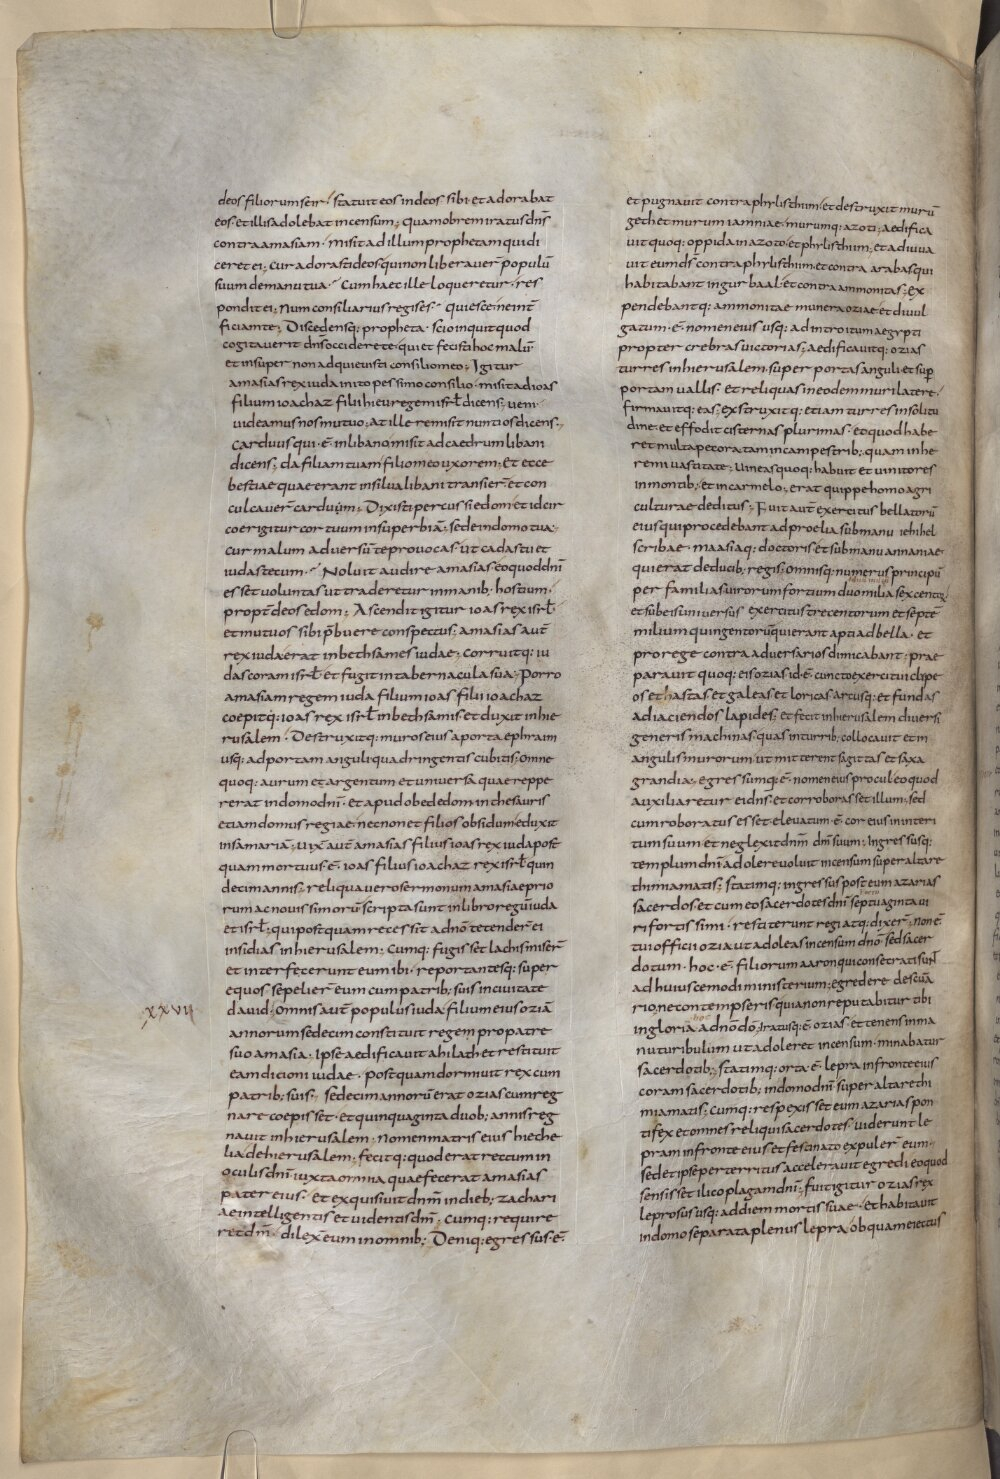 deos filiorum seir statuit eos in deos sibi et adorabat
eos et illis adolebat incensum; quamobrem iratus dn̄s
contra amasiam misit ad illum prophetam qui di
ceret ei; cur adorasti deos qui non liberauer̄ populū
suum de manu tua; Cum haec ille loqueretur res
pondit ei; Num consiliarius regis es quiesce ne int̄
ficiam te; Discedensq; propheta scio inquit quod
cogitauerit dn̄s occidere te qui et fecisti hoc malū
et insuper non adquieuisti consilio meo; Igitur
amasias rex iuda inito pessimo consilio misit ad ioas
filium ioachaz filii hieu regem isrł dicens; ueni
uideamus nos mutuo; at ille remisit nuntios dicens;
Carduus qui ē in libano misit ad caedrum libani
dicens; da filiam tuam filio meo uxorem; Et ecce
bestiae quae erant in silua libani transier̄ et con
culcauer̄ carduum; Dixisti percussi edom et idcir
co erigitur cor tuum in superbiā; sede in domo tua;
cur malum aduersū te prouocas ut cadas tu et
iudas tecum; Noluit audire amasias eo quod dn̄i
esset uoluntas ut traderetur in manib; hostium
propt̄ deos edom; Ascendit igitur ioas rex isrł
et mutuos sibi p̄buere conspectus; amasias aut̄
rex iuda erat in bethsames iudae; corruitq; iu
das coram isrł et fugit in tabernacula sua; Porro
amasiam regem iuda filium ioas filii ioachaz
coepitq; ioas rex isrł in bethsamis et duxit in hie
rusalem; Destruxitq; muros eius a porta ephraim
usq; ad portam anguli quadringentis cubitis; omne
quoq; aurum et argentum et uniuersa quae reppe
rerat in domo dn̄i et apud obededom in thesauris
etiam domus regiae necnon et filios obsidum eduxit
in samariā; uix aut̄ amasias filius ioas rex iuda post
quam mortuus ē ioas filius ioachaz rex isrł quin
decim annis; reliqua uero sermonum amasiae prio
rum ac nouissimorū scripta sunt in libro regū iuda
et isrł; qui postquam recessit a dn̄o tetender̄ ei
insidias in hierusalem; Cumq; fugisset lachis miser̄
et interfecerunt eum ibi reportantesq; super
equos sepelier̄ eum cum patrib; suis in ciuitate
xxvii
dauid; omnis aut̄ populus iuda filium eius oziā
annorum sedecim constituit regem pro patre
suo amasia; Ipse aedificauit ahilath et restituit
eam dicioni iudae postquam dormiuit rex cum
patrib; suis; sedecim annorū erat ozias cum reg
nare coepisset et quinquaginta duob; annis reg
nauit in hierusalem nomen matris eius hieche
lia de hierusalem; fecitq; quod erat rectum in
oculis dn̄i iuxta omnia quae fecerat amasias
pater eius et exquisiuit dn̄m in dieb; zachari
ae intelligentis et uidentis dm̄; Cumq; require
ret dm̄ dilex eum in omnib; Deniq; egressus ē
et pugnauit contra phylisthiim et destruxit murū
geth et murum iamniae murumq; azoti; aedifica
uit quoq; oppida in azoto et phylisthiim; et adiuua
uit eum ds̄ contra phylisthiim et contra arabas qui
habitabant in gurbaal et contra ammonitas; Ex
pendebantq; ammonitae munera oziae et diuul
gatum ē nomen eius usq; ad introitum aegypti
propter crebras uictorias; aedificauitq; ozias
turres in hierusalem super portas anguli et sup̄
portam uallis et reliquas in eodem muri latere
firmauitq; eas; exstruxitq; etiam turres in solitu
dine et effodit cisternas plurimas eo quod habe
ret multa pecora tam in campestrib; quam in he
remi uastitate; uineas quoq; habuit et uinitores
in montib; et in carmelo; erat quippe homo agri
culturae deditus; Fuit aut̄ exercitus bellatorū
eius qui procedebant ad proelia sub manu iehihel
scribae maasiaq; doctoris et sub manu annaniae
qui erat de ducib; regis; omnisq; numerus principū
per familias uirorum fortium duo milia sexcentor̄
et sub eis uniuersus exercitus trecentorum et septē
milium quingentorū qui erant apti ad bella et
pro rege contra aduersarios dimicabant prae
parauit quoq; eis ozias id ē cuncto exercitui clipe
os et hastas et galeas et loricas arcusq; et fundas
ad iaciendos lapides; et fecit in hierusalem diuersi
generis machinas quas in turrib; collocauit et in
angulis murorum ut mitterent sagittas et saxa
grandia; egressumq; ē nomen eius procul eo quod
auxiliaretur ei dn̄s et corroborasset illum; sed
cum roboratus esset eleuatum ē cor eius in interi
tum suum et neglexit dn̄m dm̄ suum; Ingressusq;
templum dn̄i adolere uoluit incensum super altare
thimiamatis; statimq; ingressus post eum azarias
sacerdos et cum eo sacerdotes dn̄i septuaginta ui
ri fortissimi restiterunt regi atq; dixer̄ non ē
tui officii ozia ut adoleas incensum dn̄o sed sacer
dotum hoc ē filiorum aaron qui consecrati sun̄t
ad huiuscemodi ministerium; egredere de scuā
rio ne contempseris quia non reputabitur tibi
hoc
in gloria a dn̄o dō; Iratusq; ē ozias et tenens in ma
nu turibulum ut adoleret incensum minabatur
sacerdotib; statimq; orta ē lepra in fronte eius
coram sacerdotib; in domo dn̄i super altare thi
miamatis; Cumq; respexisset eum azarias pon
tifex et omnes reliqui sacerdotes uiderunt le
pram in fronte eius et festinato expuler̄ eum
sed et ipse perterritus accelerauit egredi eo quod
sensisset ilico plagam dn̄i; fuit igitur ozias rex
leprosus usq; ad diem mortis suae et habitauit
in domo separata plenus lepra ob quam eiectus